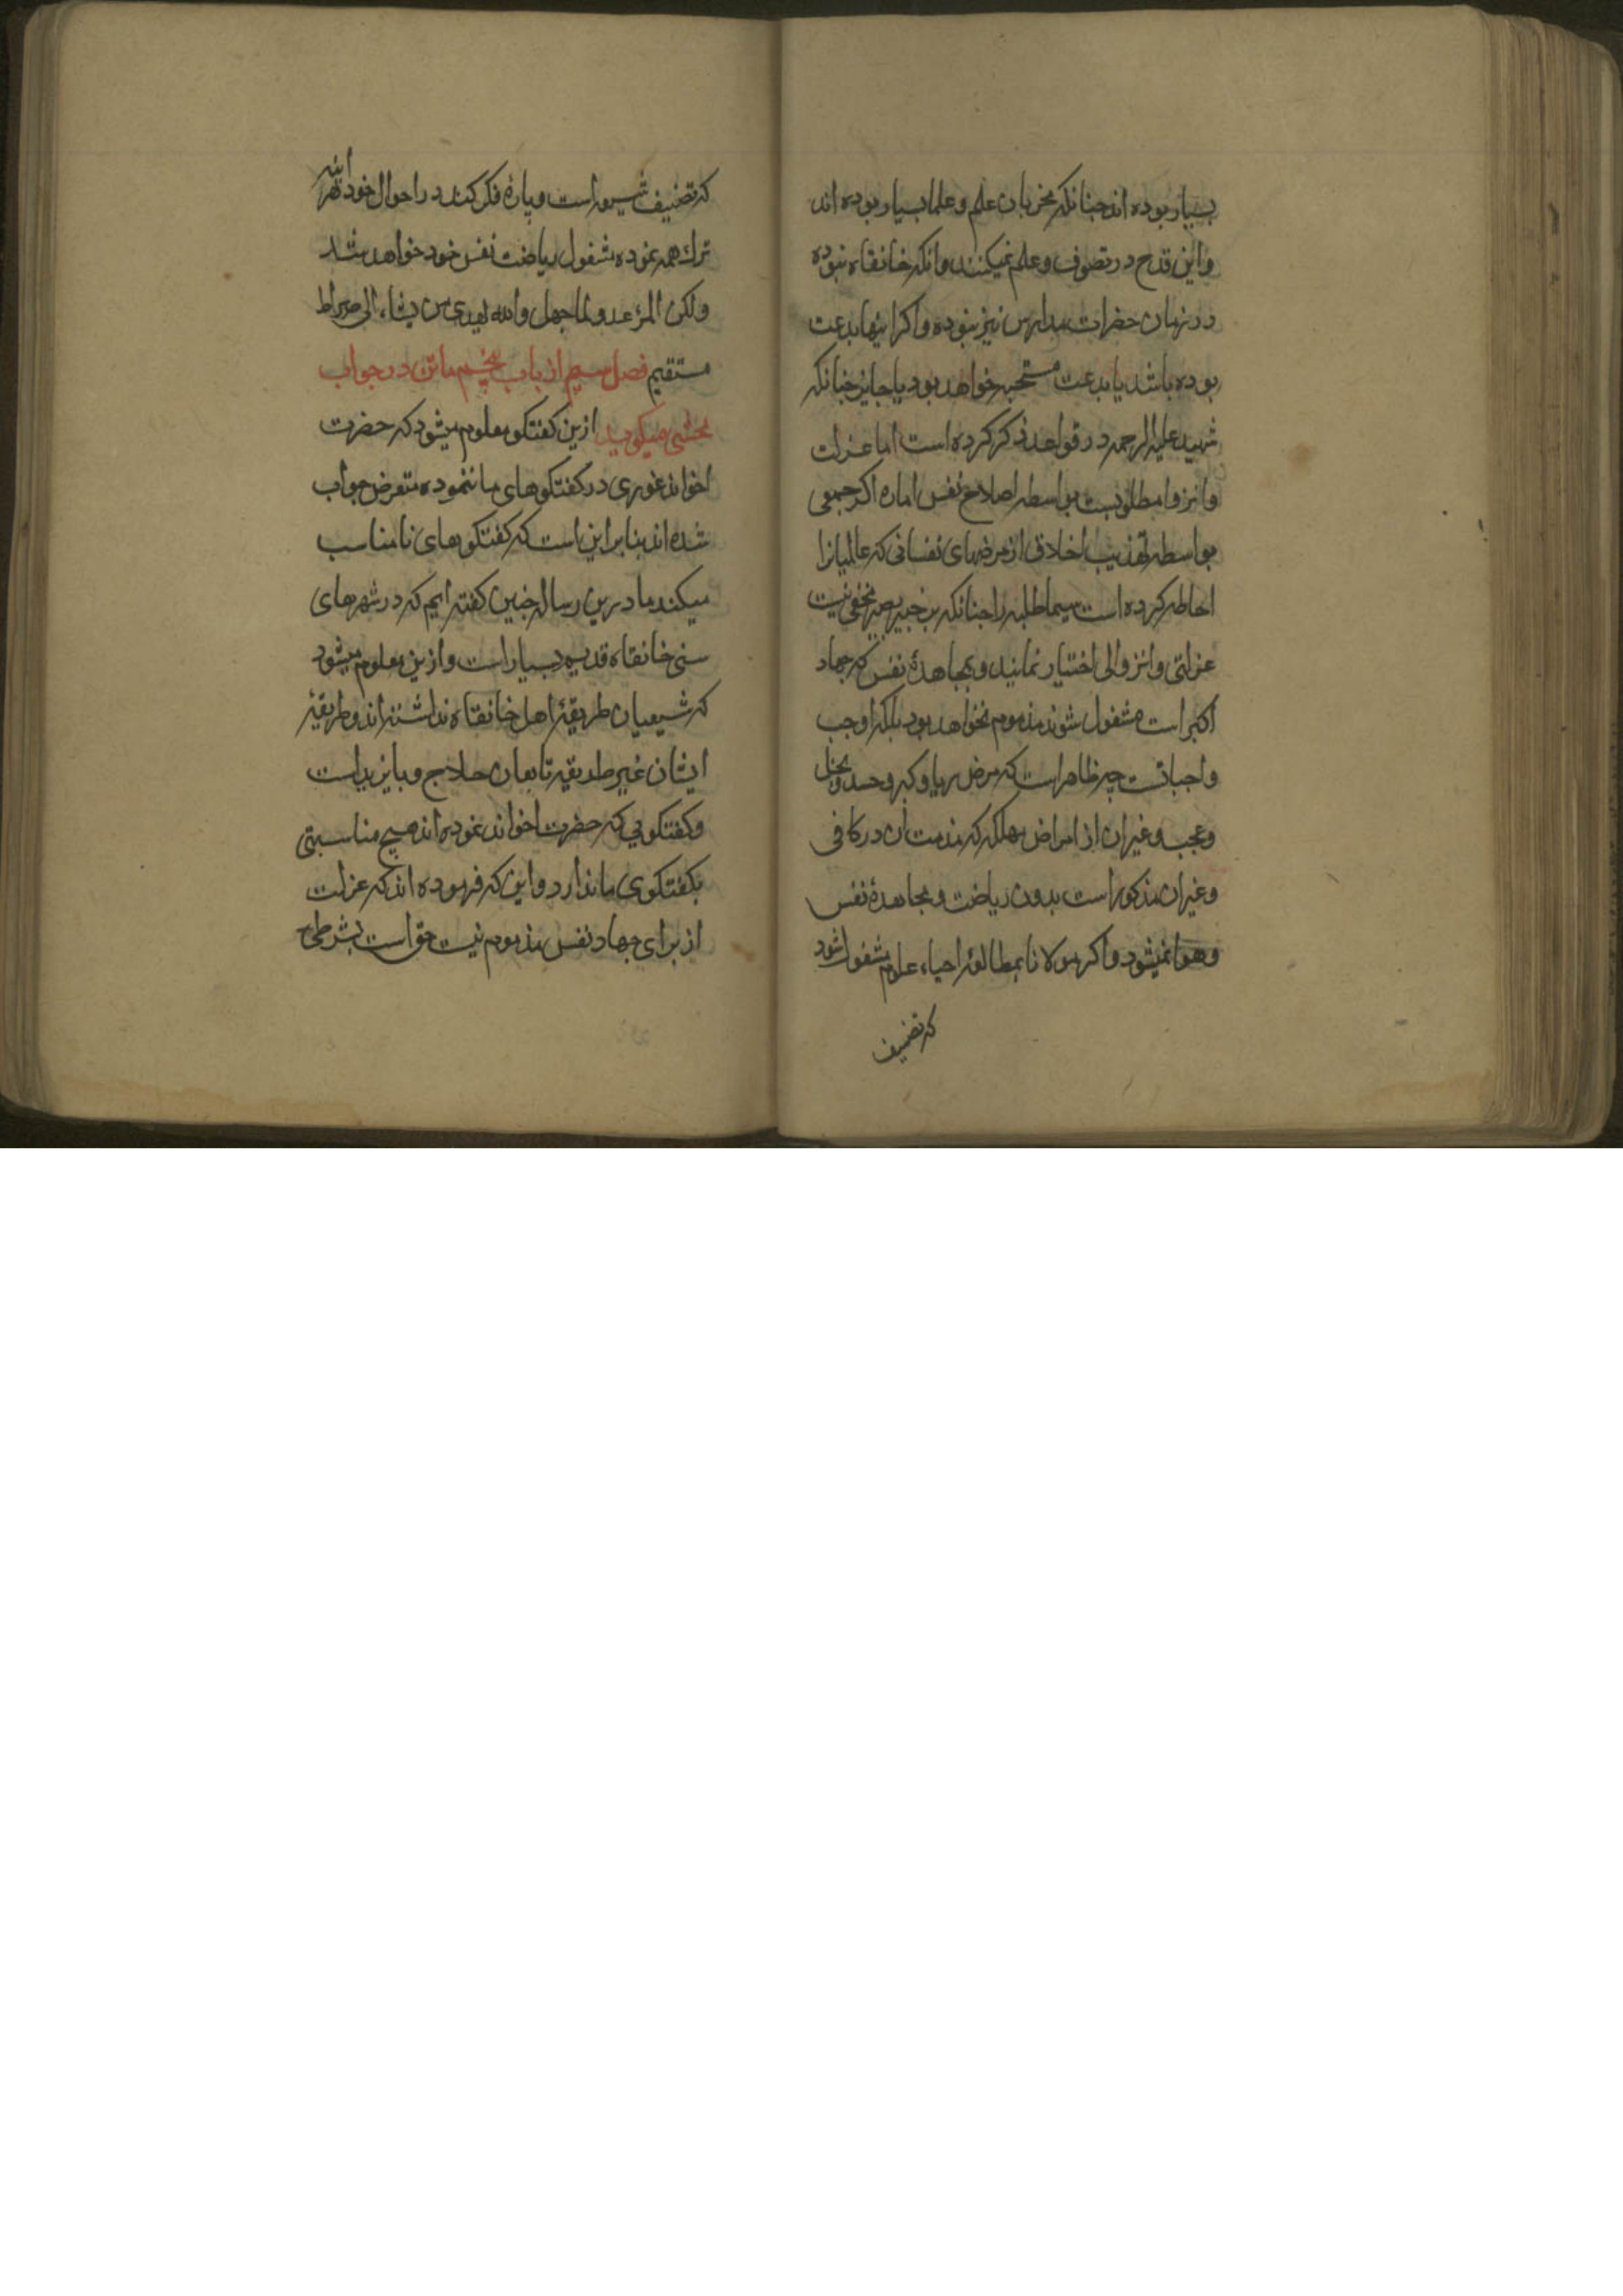 بسیار بوده اند چنانکه مخربان علم و علما بسیار بوده اند
و این قدح در تصوف و علم نمیکند و آنکه خانقاه نبوده
در زمان حضرات مدارس نیز نبوده و اکر اینها بدعت
بوده باشد یا بدعت مستحبه خواهد بود یا جایز چنانکه
شهید علیه الرحمه در قواعد ذکر کرده است اما عزلت
و انزوا مطلوبست بواسطه اصلاح نفس اماره اکر جمعی
بواسطه تهذیب اخلاق از مرضهای نفسانی که عالمیانرا
احاطه کرده است سیما طلبه را چنانکه بر خبیر بصیر مخفی نیست
عزلتی و انزوائی اختیار نمایند و بمجاهدهٔ نفس که جهاد
اکبر است مشغول شوند مذموم نخواهد بود بلکه اوجب
واجباتست چه ظاهر است که مرض ریا و کبر و حسد و بخل
و عجب و غیر ان از امراض مهلکه که مذمت آن در کافی
و غیر ان مذکور است بدون ریاضت و مجاهدهٔ نفس
و هوا نمیشود و اکر مولانا بمطالعهٔ احیاء علوم مشغول شود
که تصنیف
که تصنیف شیعه است و پارهٔ فکر کنند در احوال خود البته
ترك همه نموده مشغول ریاضت نفس خود خواهد شد
ولکن المرء عدو لما جهل والله یهدی من یشاء الی صراط
مستقیم فصل سیم از باب پنجم ماتن در جواب
محشی میکوید ازین کفتکو معلوم میشود که حضرت
اخواند غوری در کفتکوهای ما ننموده متعرض جواب
شده اند بنابراین است که کفتکوهای نامناسب
میکند ما درین رساله چنین کفته ایم که در شهرهای
سنی خانقاه قدیم بسیار است و ازین معلوم میشود
که شیعیان طریقهٔ اهل خانقاه نداشته اند و طریقهٔ
ایشان غیر طریقه تابعان حلاج و بایزید است
و کفتکویی که حضرت اخواند نموده اند هیچ مناسبتی
بکفتکوی ما ندارد و این که فرموده اند که عزلت
از برای جهاد نفس مذموم نیست حق است بشرطی